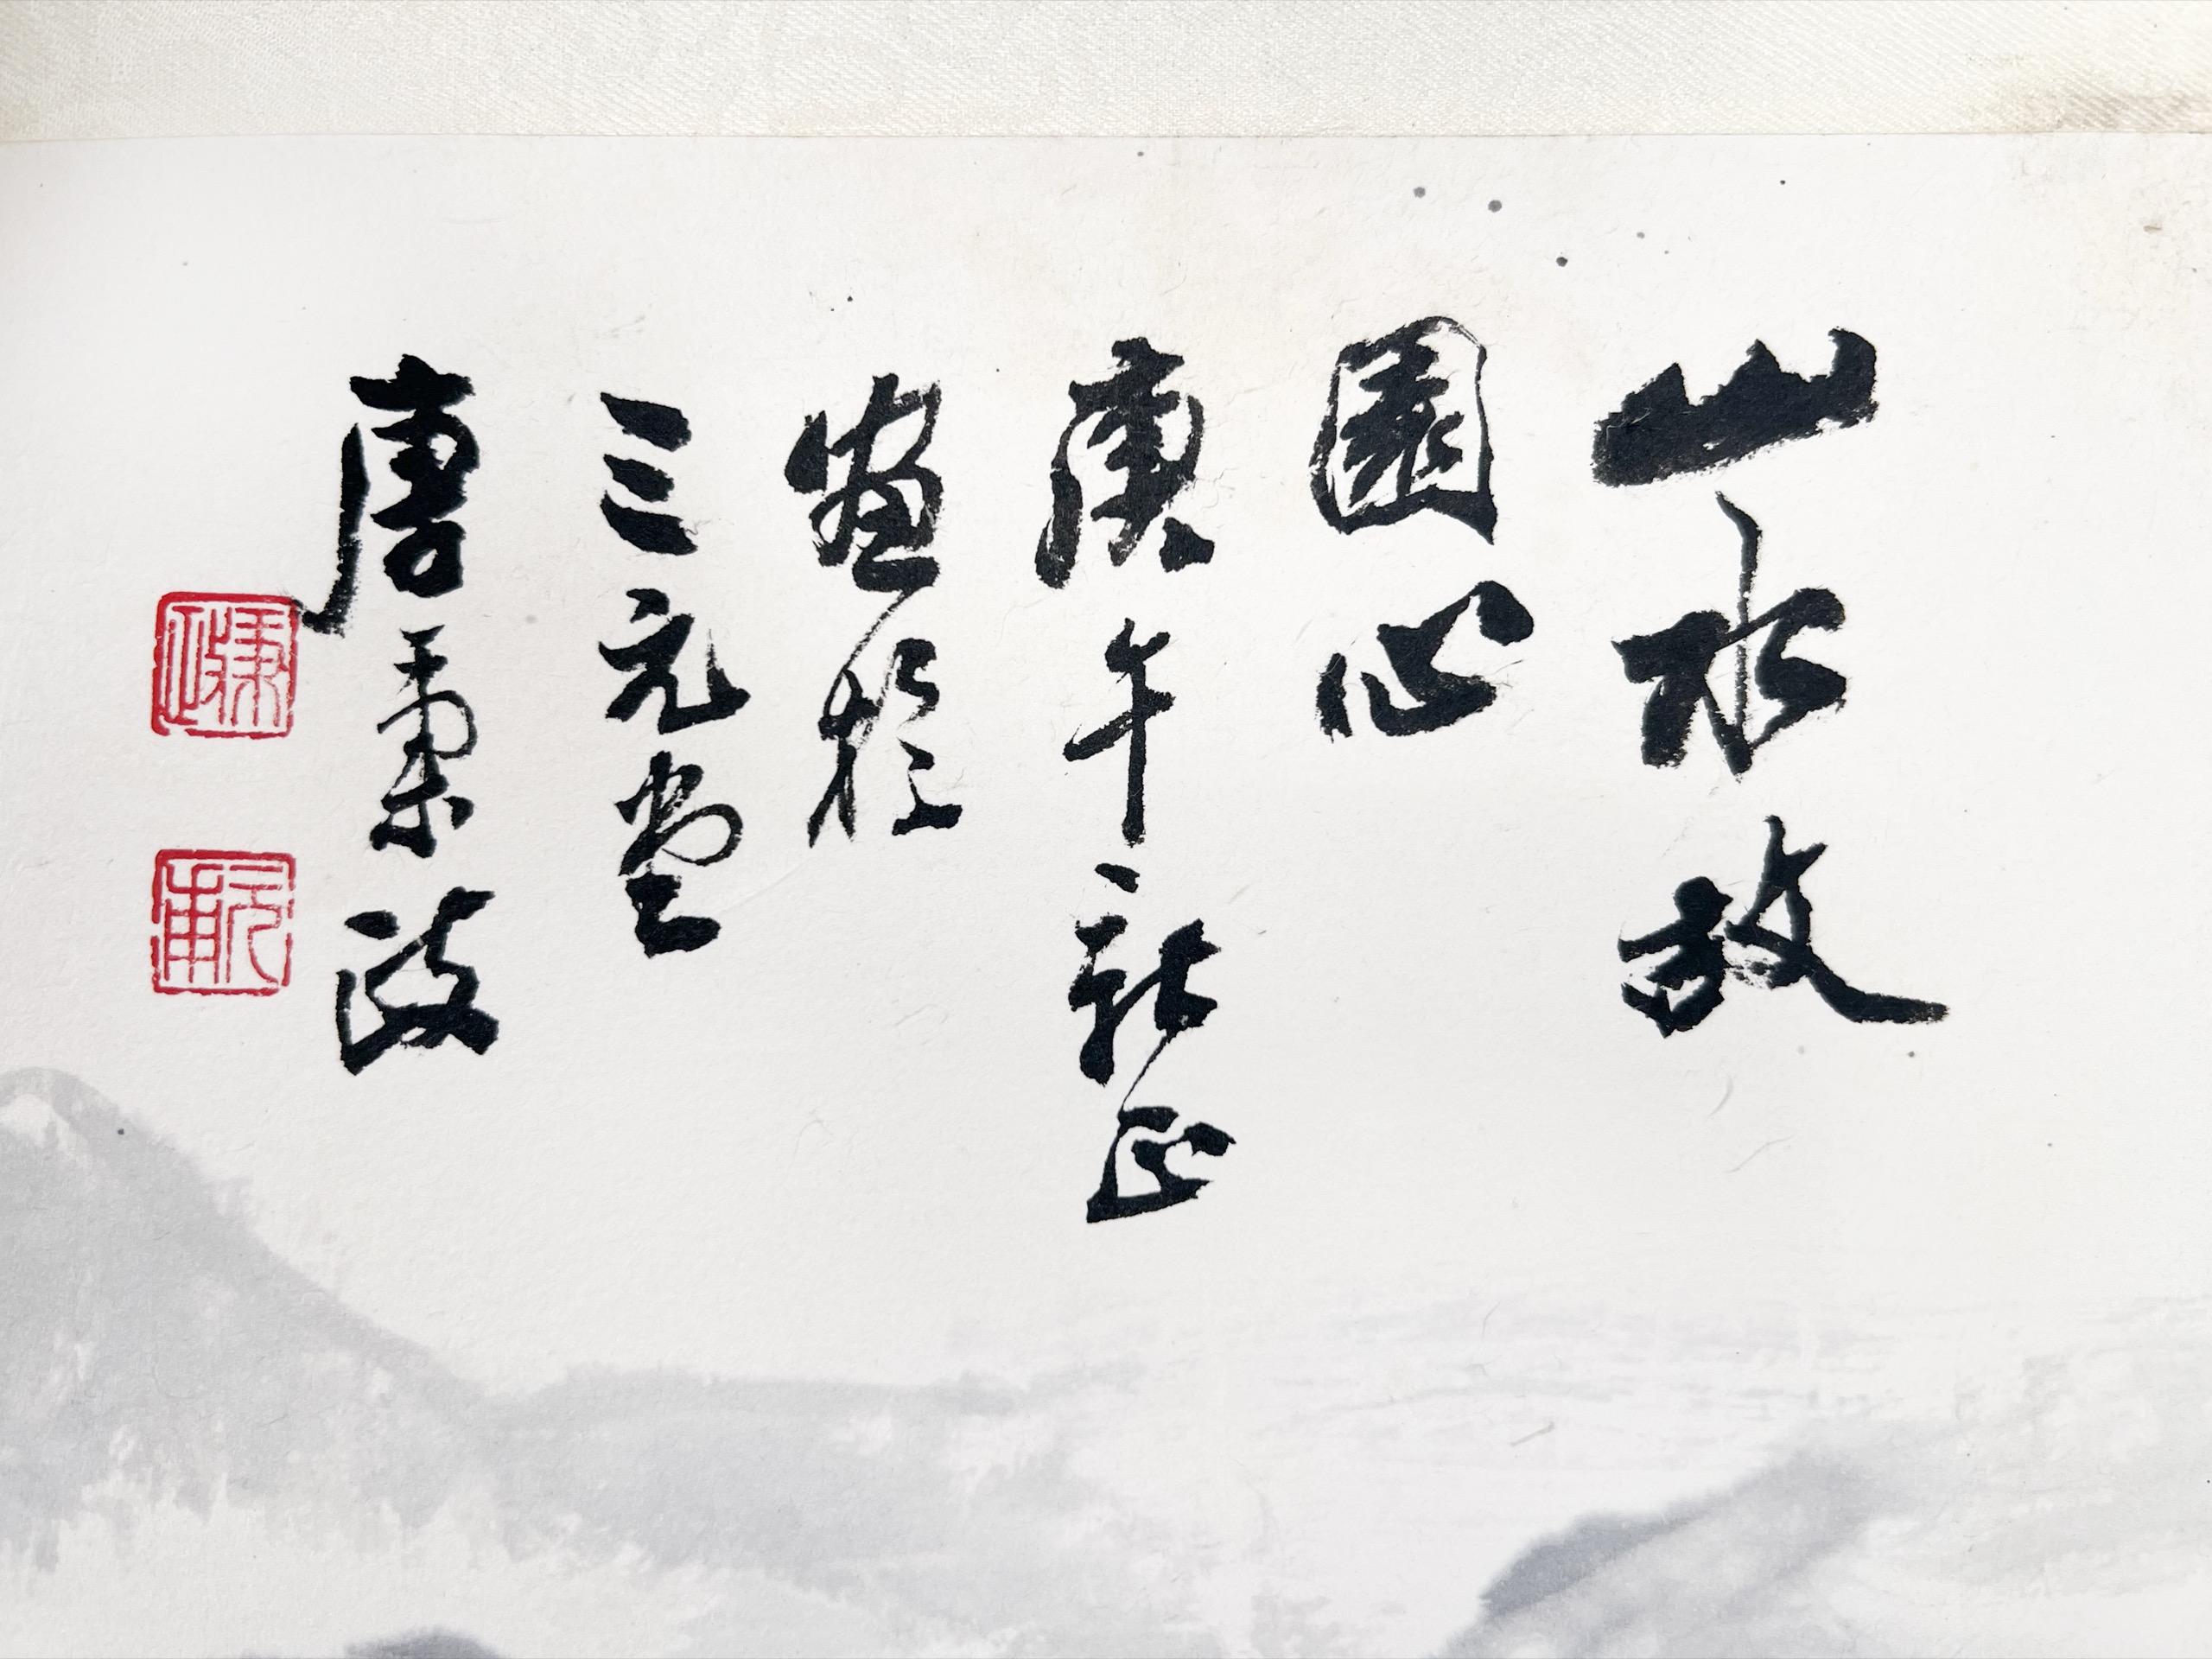 山水故
園心
庚午新正
畫於
三元堂
唐秉政